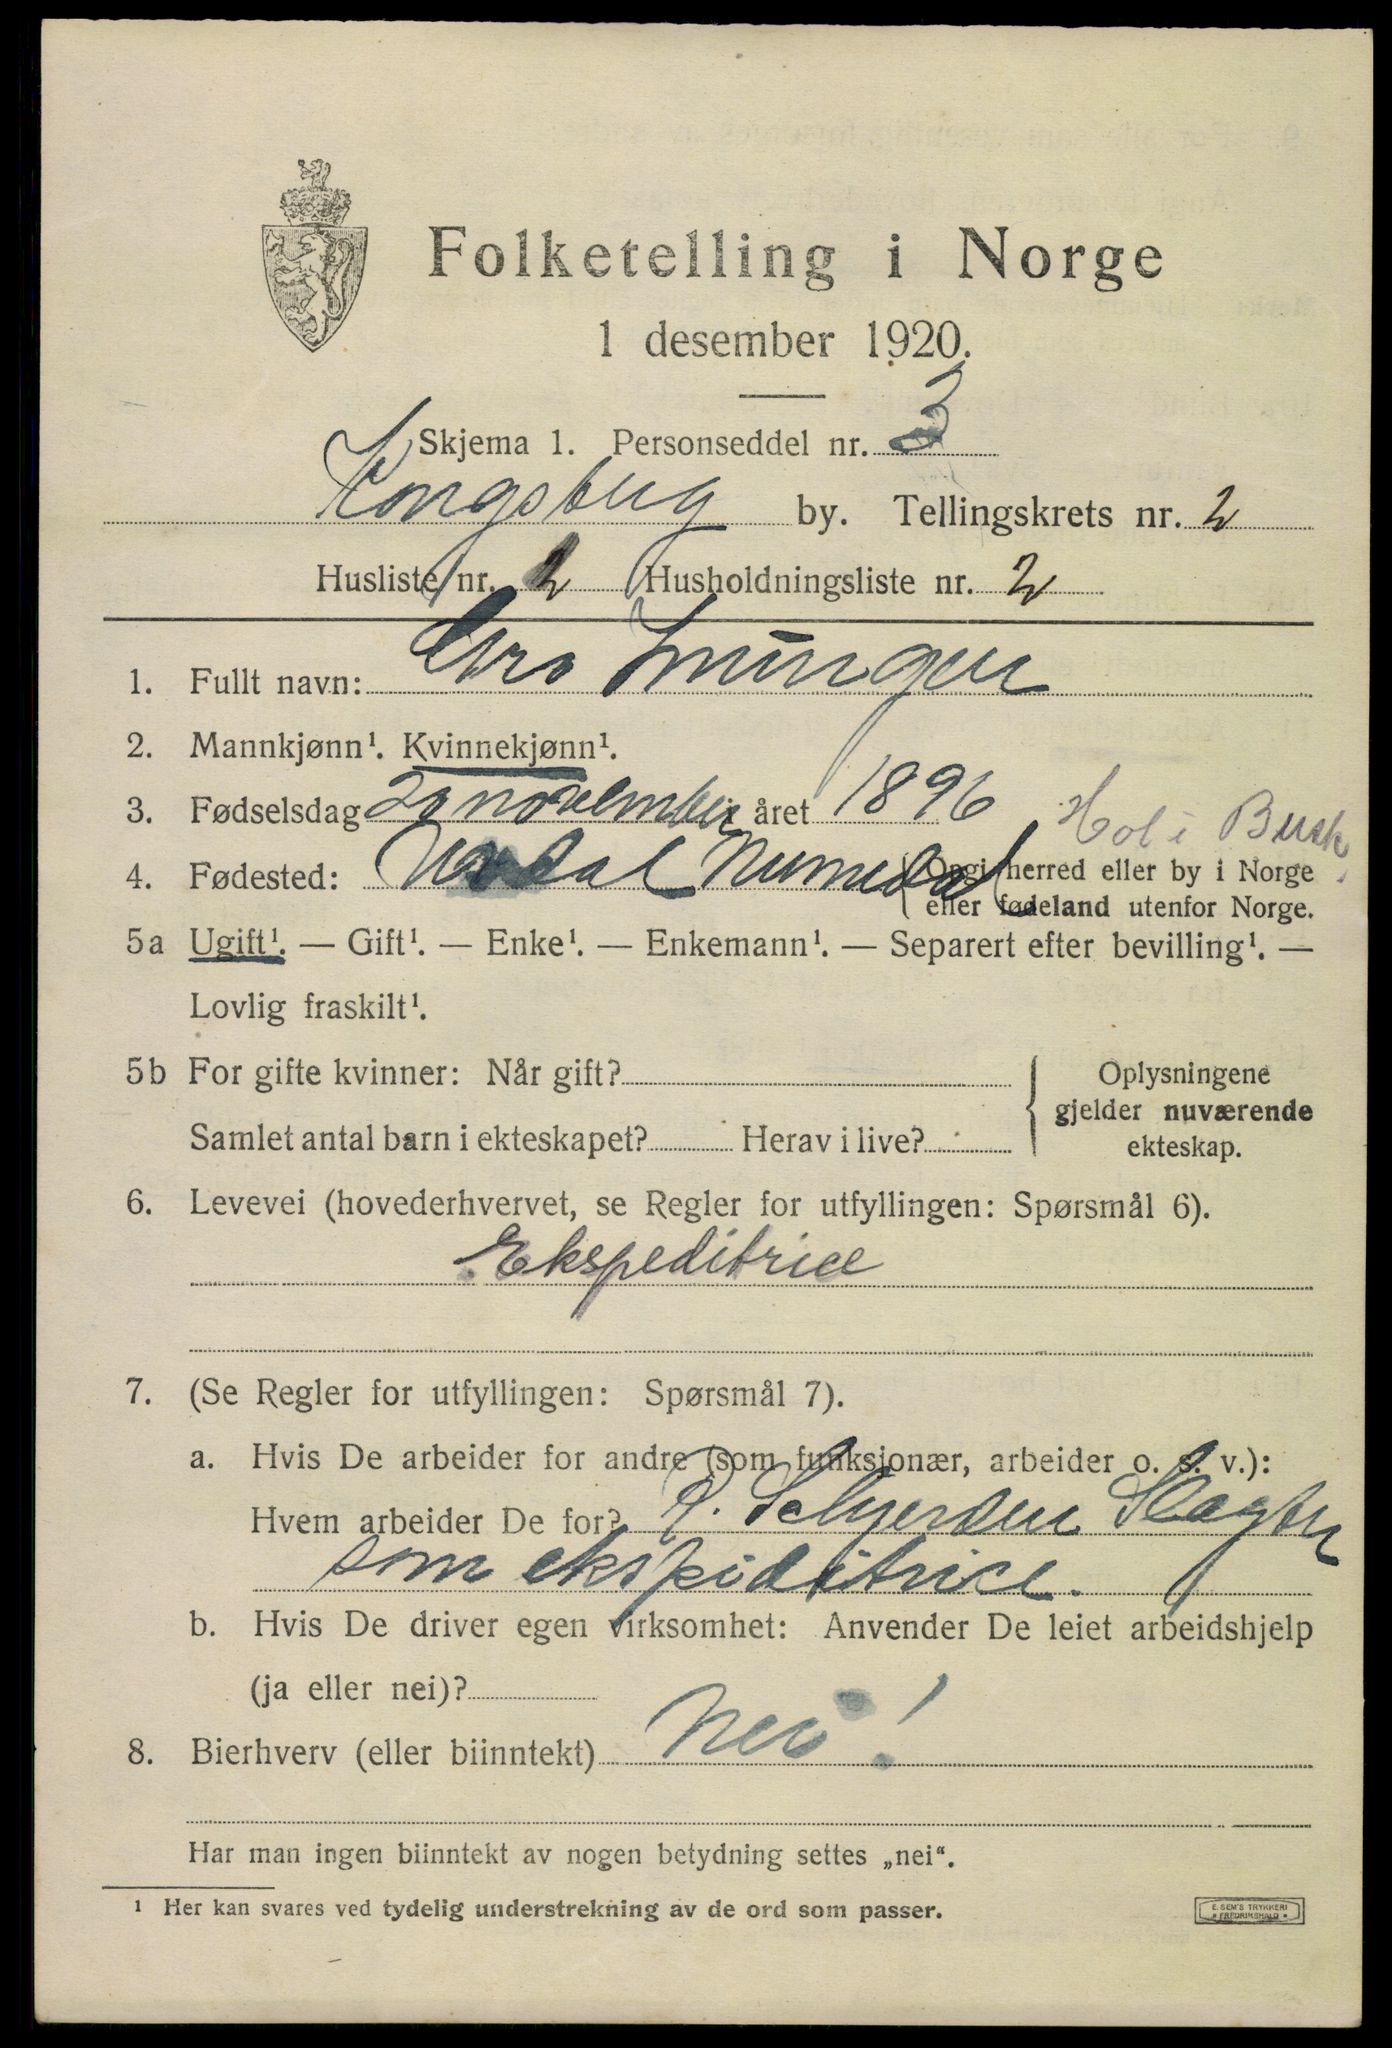 Folketelling i Norge
1 desember 1920.
Skjema 1. Personseddel nr. 3
Kongsberg by. Tellingskrets nr. 2
Husliste nr. 2 Husholdningsliste nr. 2
1. Fullt navn: Gro
2. Mannkjønn¹. Kvinnekjønn¹.
3. Fødselsdag 20 november i året 1896
Hol i Busk.
4. Fødested: Uvdal Numedal
{ Opgi herred eller by i Norge
eller fødeland utenfor Norge.
5a Ugift¹. — Gift¹. — Enke¹. — Enkemann¹. — Separert efter bevilling¹. —
Lovlig fraskilt¹.
5b For gifte kvinner: Når gift?
Samlet antal barn i ekteskapet? Herav i live?
{ Oplysningene
gjelder nuværende
ekteskap.
6. Levevei (hovederhvervet, se Regler for utfyllingen: Spørsmål 6).
Ekspeditrice
7. (Se Regler for utfyllingen: Spørsmål 7).
a. Hvis De arbeider for andre (som funksjonær, arbeider o. s. v.):
Hvem arbeider De for? Schjerden Slagter
som ekspeditrice.
b. Hvis De driver egen virksomhet: Anvender De leiet arbeidshjelp
(ja eller nei)?
8. Bierhverv (eller biinntekt) Nei!
Har man ingen biinntekt av nogen betydning settes „nei“.
¹ Her kan svares ved tydelig understrekning av de ord som passer.
E. SEM'S TRYKKERI
FREDRIKSHALD